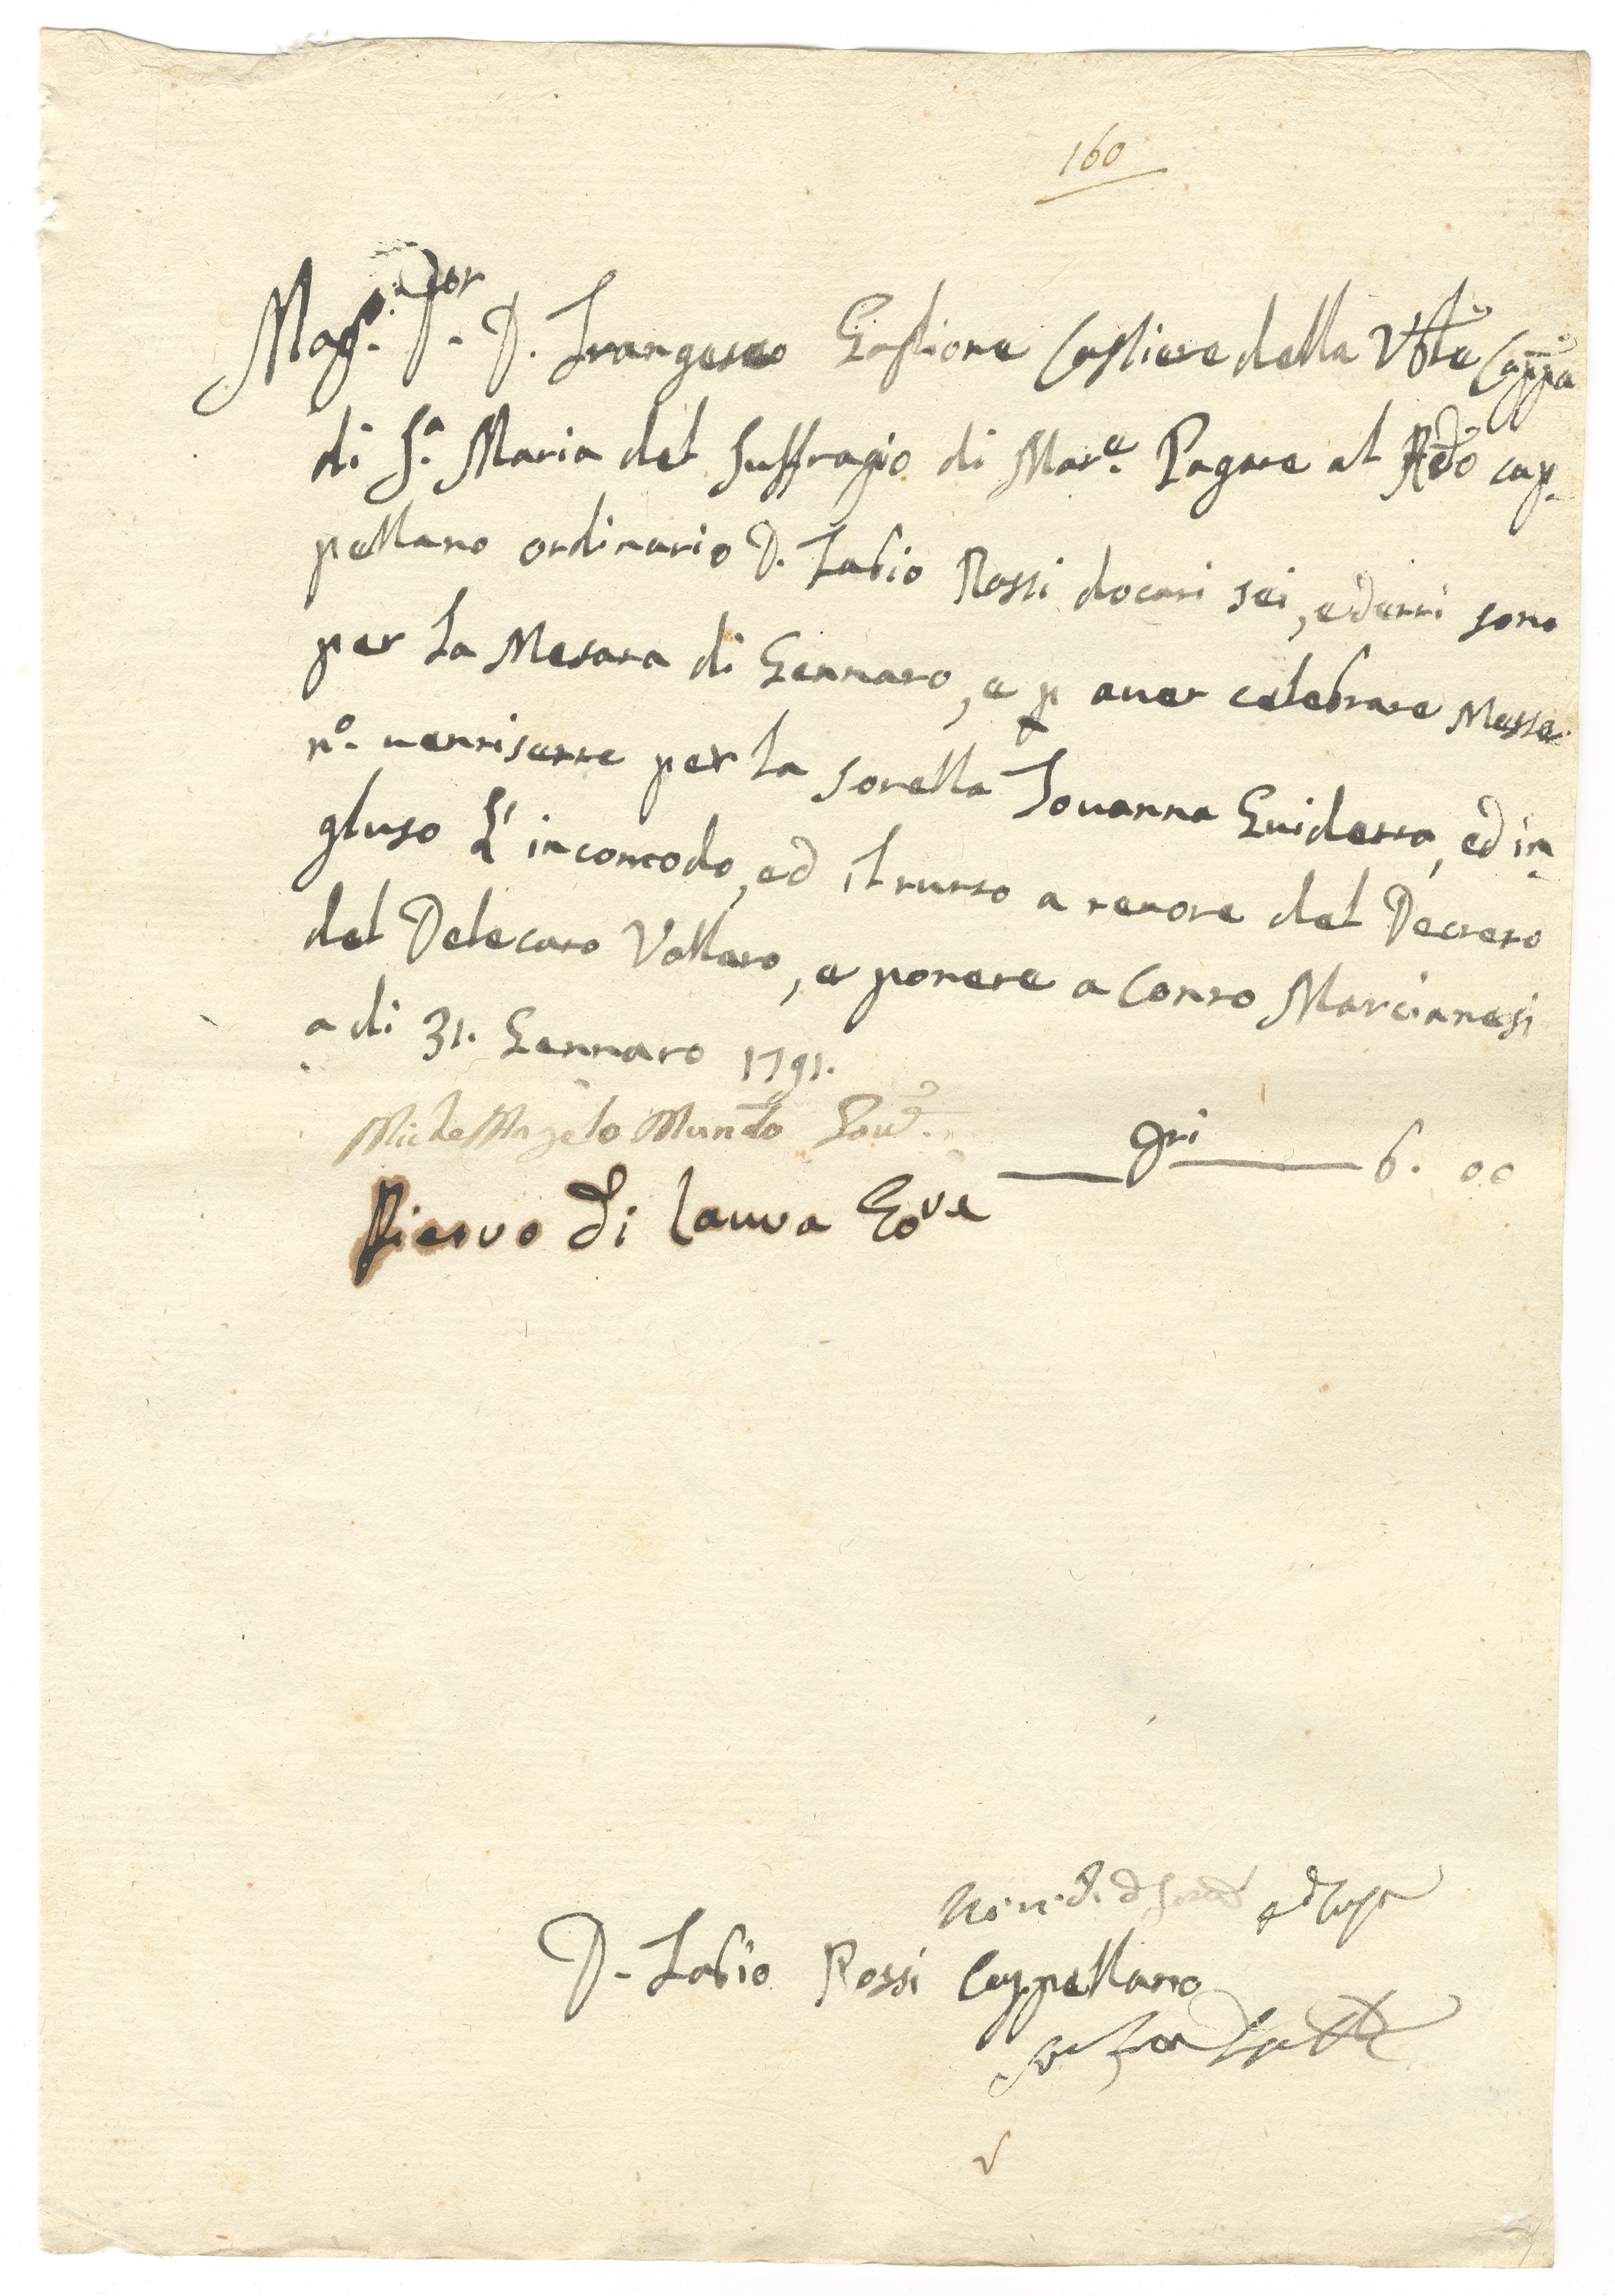 160
Mag.co S.or D. Frangesco Gaglione Casliere della V̅b̅le Capp.a
di S.a Maria del Suffragio di Mar.e Pagate al R̅e̅d̅o cap-
pellano ordinario D. Fabio Rossi docati sei, e detti sono
per la Mesata di Gennaro, e p aver celebrate Messe
n.o ventisette per la sorella Iovanna Guidetta, ed in-
gluso L'incomodo, ed il tutto a tenore del Decreto
del Delecato Vollaro, e ponete a Conto Marcianesi
a di 31. Gennaro 1791.
MicheľAngelo Mundo Gov.e
D.ti 6. 00
Pietro di Lauro Gov.e
D. Fabio Rossi Cappellano